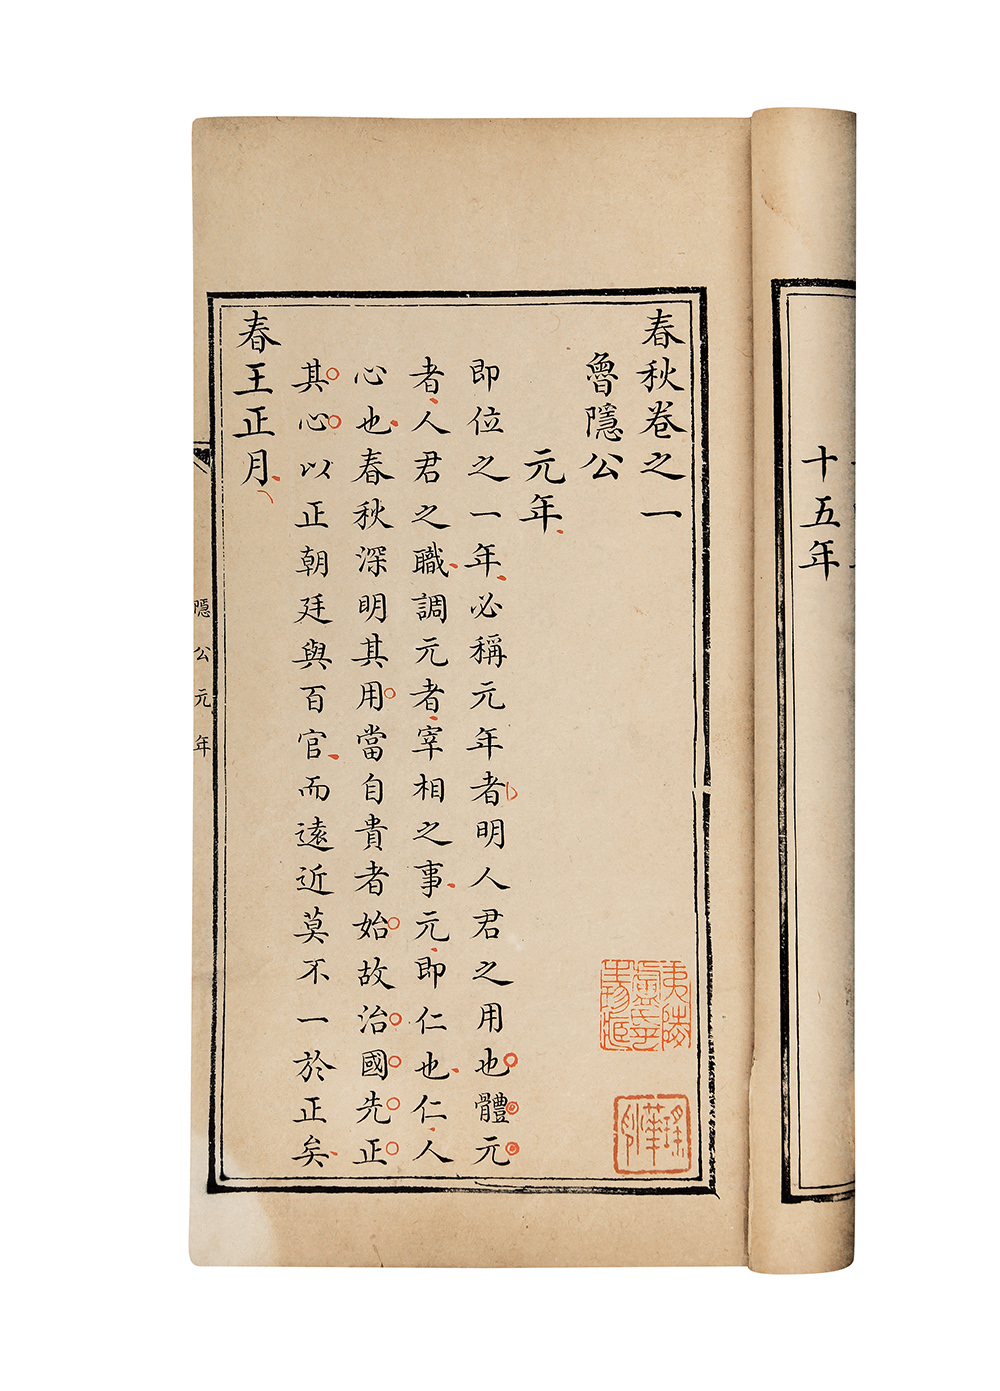 十五年
春秋卷之一
魯隱公
元年
即位之一年必稱元年者明人君之用也體元
者人君之職調元者宰相之事元即仁也仁人
心也春秋深明其用當自貴者始故治國先正
其心以正朝廷與百官而遠近莫不一於正矣
春王正月
隱公元年